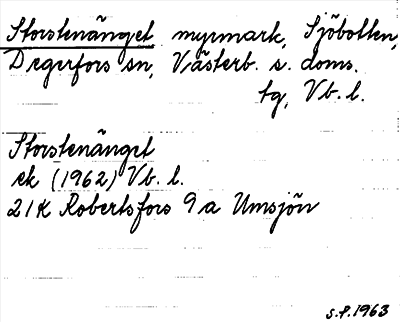 Storstenänget myrmark, Sjöbotten,
Degerfors sn, Västerb. s. doms.
tg, Vb. l.
Storstenänget
ek (1962) Vb. l.
21K Robertsfors 9a Umsjön
s.f. 1963